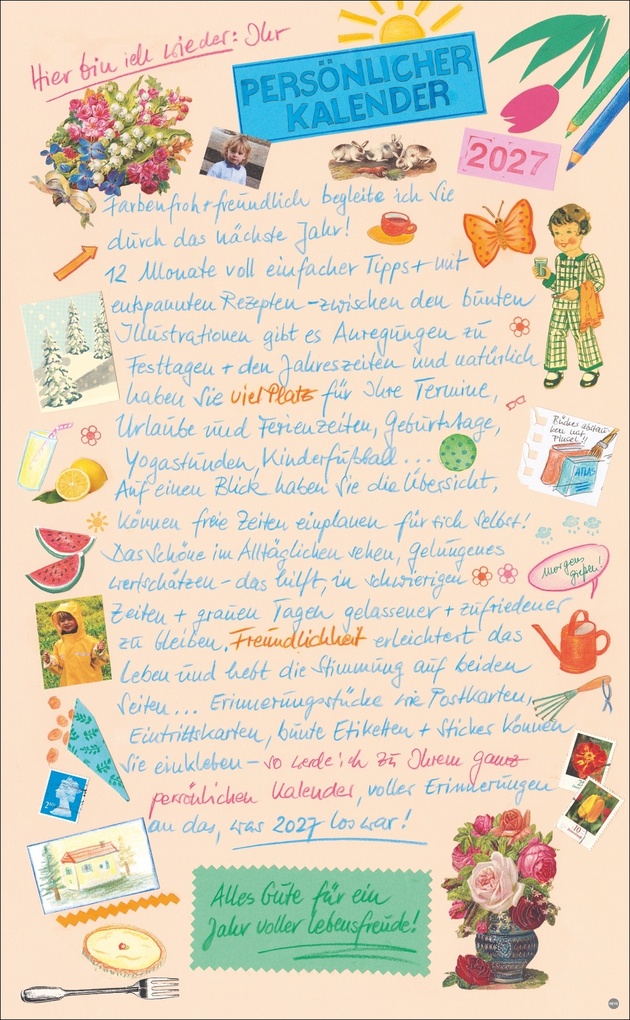 Hier bin ich wieder: Ihr
PERSÖNLICHER
KALENDER
2027
Farbenfroh + freundlich begleite ich Sie
durch das nächste Jahr!
12 Monate voll einfacher Tipps + mit
entspannten Rezepten – zwischen den bunten
Illustrationen gibt es Anregungen zu
Festtagen + den Jahreszeiten und natürlich
haben Sie viel Platz für Ihre Termine,
Urlaube und Ferienzeiten, Geburtstage,
Yogastunden, Kinderfußball ...
Auf einen Blick haben Sie die Übersicht,
können freie Zeiten einplanen für sich selbst!
Das Schöne im Alltäglichen sehen, gelungenes
wertschätzen – das hilft, in schwierigen
Zeiten + grauen Tagen gelassener + zufriedener
zu bleiben. Freundlichkeit erleichtert das
Leben und hebt die Stimmung auf beiden
Seiten ... Erinnerungsstücke wie Postkarten,
Eintrittskarten, bunte Etiketten + Sticker können
Sie einkleben – so werde ich zu Ihrem ganz
persönlichen Kalender, voller Erinnerungen
an das, was 2027 los war!
Bücher abstau
ben mit
Pinsel!!
ATLAS
Morgens
gießen!
2ND
10
Alles Gute für ein
Jahr voller Lebensfreude!